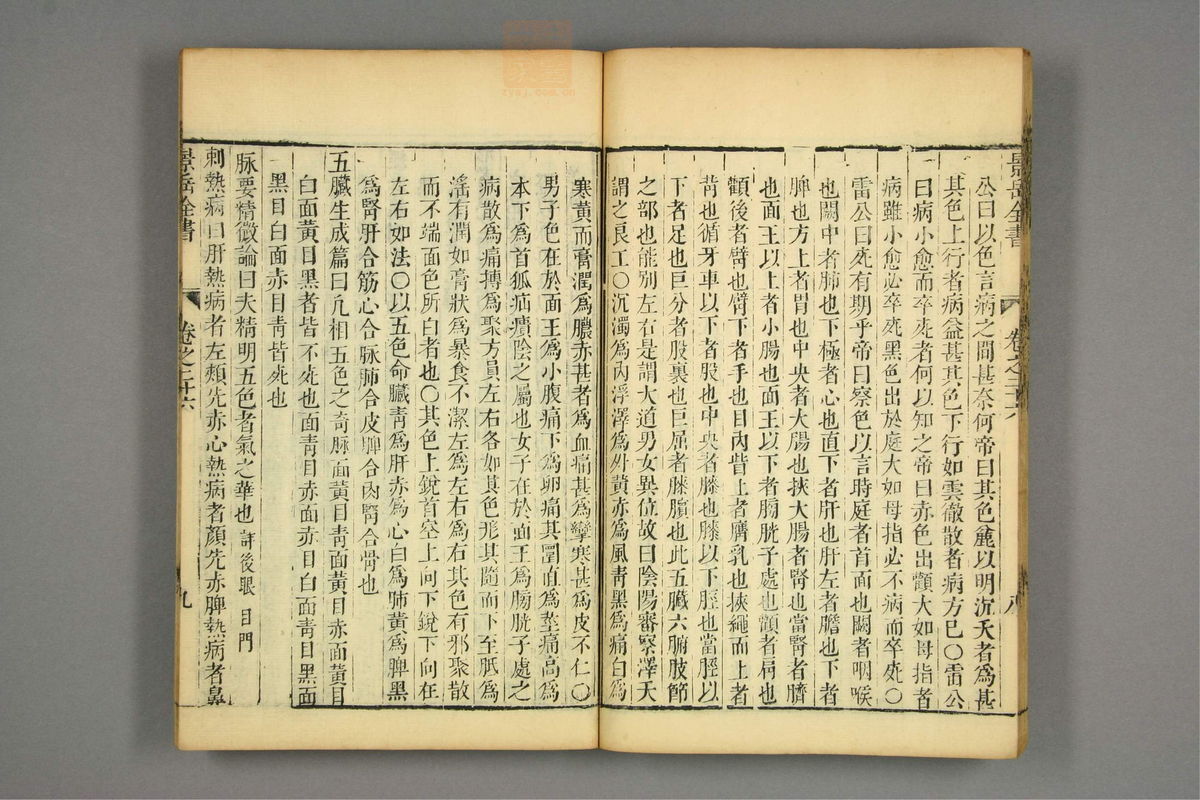 景岳全書
卷之二十六
八
公曰以色言病之間甚奈何帝曰其色麄以明沉夭者爲甚
其色上行者病益甚其色下行如雲徹散者病方已〇雷公
曰病小愈而卒死者何以知之帝曰赤色出顴大如母指者
病雖小愈必卒死黑色出於庭大如母指必不病而卒死〇
雷公曰死有期乎帝曰察色以言時庭者首面也闕者咽喉
也闕中者肺也下極者心也直下者肝也肝左者膽也下者
脾也方上者胃也中央者大腸也挾大腸者腎也當腎者臍
也面王以上者小腸也面王以下者膀胱子處也顴者肩也
顴後者臂也臂下者手也目內眥上者膺乳也挾繩而上者
背也循牙車以下者股也中央者膝也膝以下脛也當脛以
下者足也巨分者股裏也巨屈者膝臏也此五臟六腑肢節
之部也能別左右是謂大道男女異位故曰陰陽審察澤夭
謂之良工〇沉濁爲內浮澤爲外黃赤爲風青黑爲痛白爲
寒黃而膏潤爲膿赤甚者爲血痛甚爲攣寒甚爲皮不仁〇
男子色在於面王爲小腹痛下爲卵痛其圜直爲莖痛高爲
本下爲首狐疝㿉陰之屬也女子在於面王爲膀胱子處之
病散爲痛摶爲聚方員左右各如其色形其隨而下至胝爲
淫有潤如膏狀爲暴食不潔左爲左右爲右其色有邪聚散
而不端面色所白者也〇其色上銳首空上向下銳下向在
左右如法〇以五色命臟青爲肝赤爲心白爲肺黃爲脾黑
爲腎肝合筋心合脉肺合皮脾合肉腎合骨也
五臟生成篇曰凡相五色之奇脉面黃目青面黃目赤面黃目
白面黃目黑者皆不死也面青目赤面赤目白面青目黑面
黑目白面赤目青皆死也
脉要精微論曰夫精明五色者氣之華也詳後眼目門
刺熱病曰肝熱病者左頰先赤心熱病者顏先赤脾熱病者鼻
景岳全書
卷之二十六
九